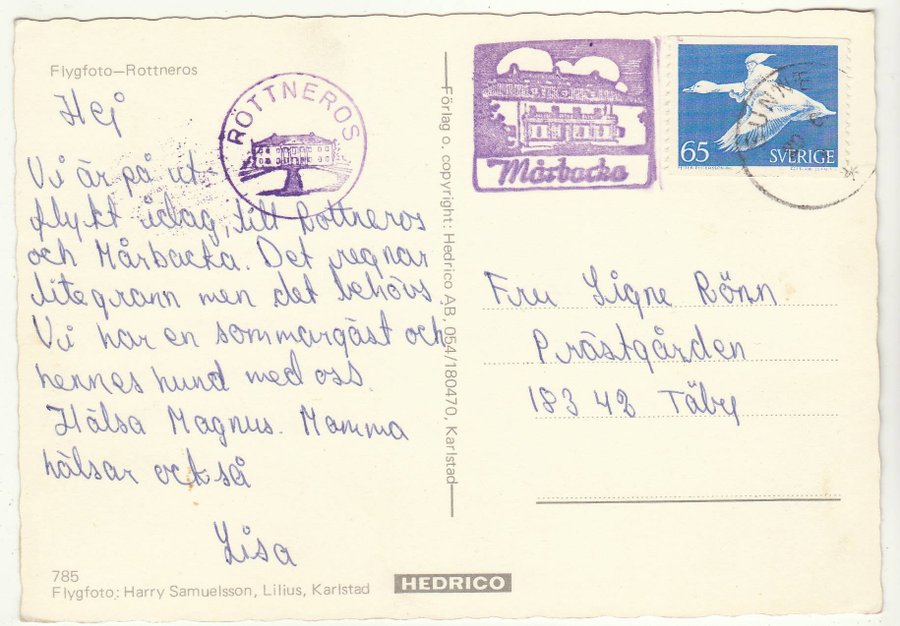 Flygfoto—Rottneros
Hej
Vi är på ut-
flykt idag, till Rottneros
och Mårbacka. Det regnar
litegrann men det behövs.
Vi har en sommargäst och
hennes hund med oss.
Hälsa Magnus. Mamma
hälsar också
Lisa
785
Flygfoto: Harry Samuelsson, Lilius, Karlstad
HEDRICO
RÖTTNEROS
Förlag o. copyright: Hedrico AB, 054/180470, Karlstad
Mårbacka
65 SVERIGE
SUNNE
Fru Signe Rönn
Prästgården
183 42 Täby